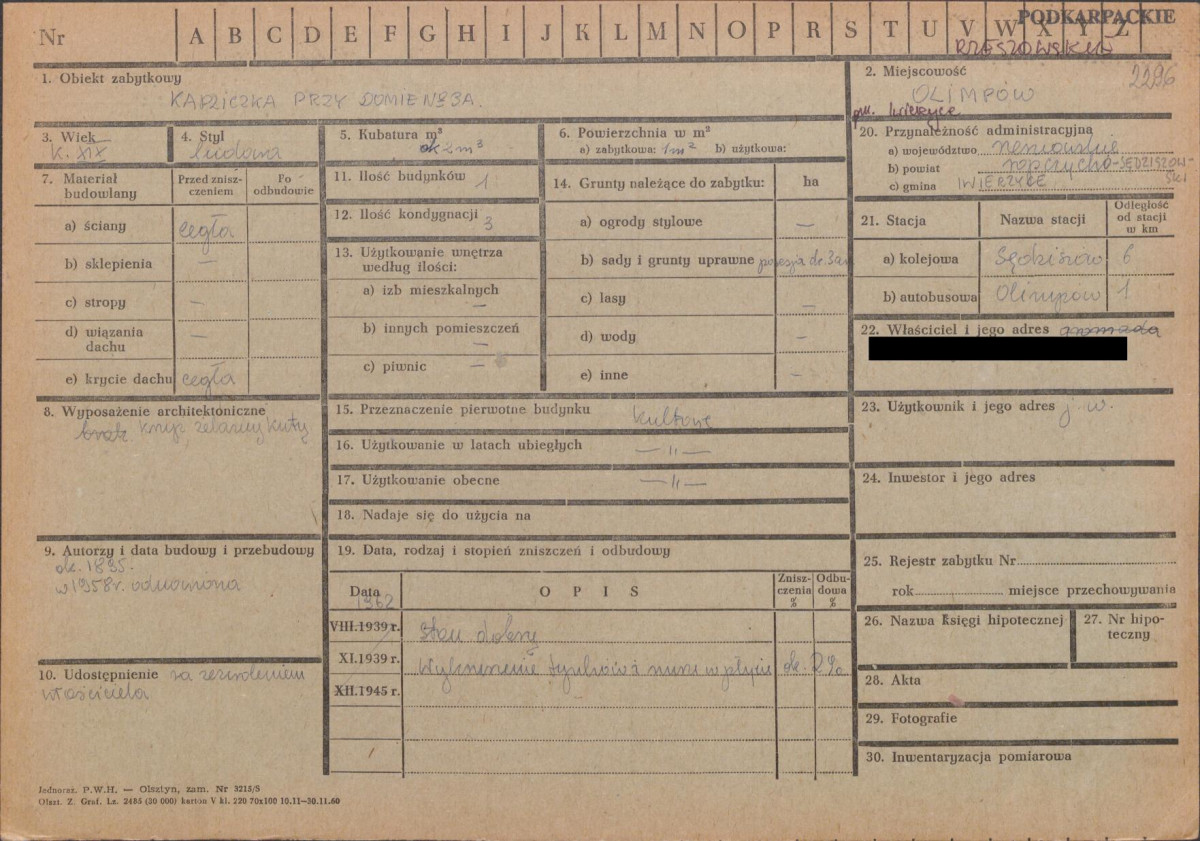 PODKARPACKIE
Nr A B C D E F G H I J K L M N O P R S T U V W X Y Z
RZESZOWSKIE
1. Obiekt zabytkowy
KAPLICZKA PRZY DOMIE Nº 3A.
2. Miejscowość 2296
OLIMPÓW
gm. Iwierzyce
3. Wiek
K. XIX
4. Styl
ludowa
5. Kubatura m³
ok 2 m³
6. Powierzchnia w m²
a) zabytkowa: 1m² b) użytkowa:
20. Przynależność administracyjna
a) województwo rzeszowskie
b) powiat ropczycko-SĘDZISZOWSKI
c) gmina IWIERZYCE
7. Materiał budowlany
Przed zniszczeniem
Po odbudowie
a) ściany cegła
b) sklepienia —
c) stropy —
d) wiązania dachu —
e) krycie dachu cegła
11. Ilość budynków 1
12. Ilość kondygnacji 3
13. Użytkowanie wnętrza według ilości:
a) izb mieszkalnych —
b) innych pomieszczeń —
c) piwnic —
14. Grunty należące do zabytku: ha
a) ogrody stylowe —
b) sady i grunty uprawne
c) lasy —
d) wody —
e) inne —
21. Stacja
Nazwa stacji
Odległość od stacji w km
a) kolejowa Sędziszów 6
b) autobusowa Olimpów 1
22. Właściciel i jego adres gromada
8. Wyposażenie architektoniczne
brak krzyż żelazny kuty
15. Przeznaczenie pierwotne budynku kultowe
16. Użytkowanie w latach ubiegłych — 11 —
17. Użytkowanie obecne — 11 —
18. Nadaje się do użycia na
23. Użytkownik i jego adres j. w.
24. Inwestor i jego adres
9. Autorzy i data budowy i przebudowy
ok. 1895.
w 1958r. odnowiona
10. Udostępnienie za zezwoleniem
właściciela
19. Data, rodzaj i stopień zniszczeń i odbudowy
Data
OPIS
Zniszczenia %
Odbudowa %
1962
VIII.1939 r. stan dobry
XI.1939 r. Wykruszenie tynków i nisze w płycie ok. 2%
XII.1945 r.
25. Rejestr zabytku Nr
rok miejsce przechowywania
26. Nazwa księgi hipotecznej
27. Nr hipoteczny
28. Akta
29. Fotografie
30. Inwentaryzacja pomiarowa
Jednoraz. P.W.H. — Olsztyn, zam. Nr 3215/S
Olszt. Z. Graf. Lz. 2485 (30 000) karton V kl. 220 70x100 10.11—30.11.60